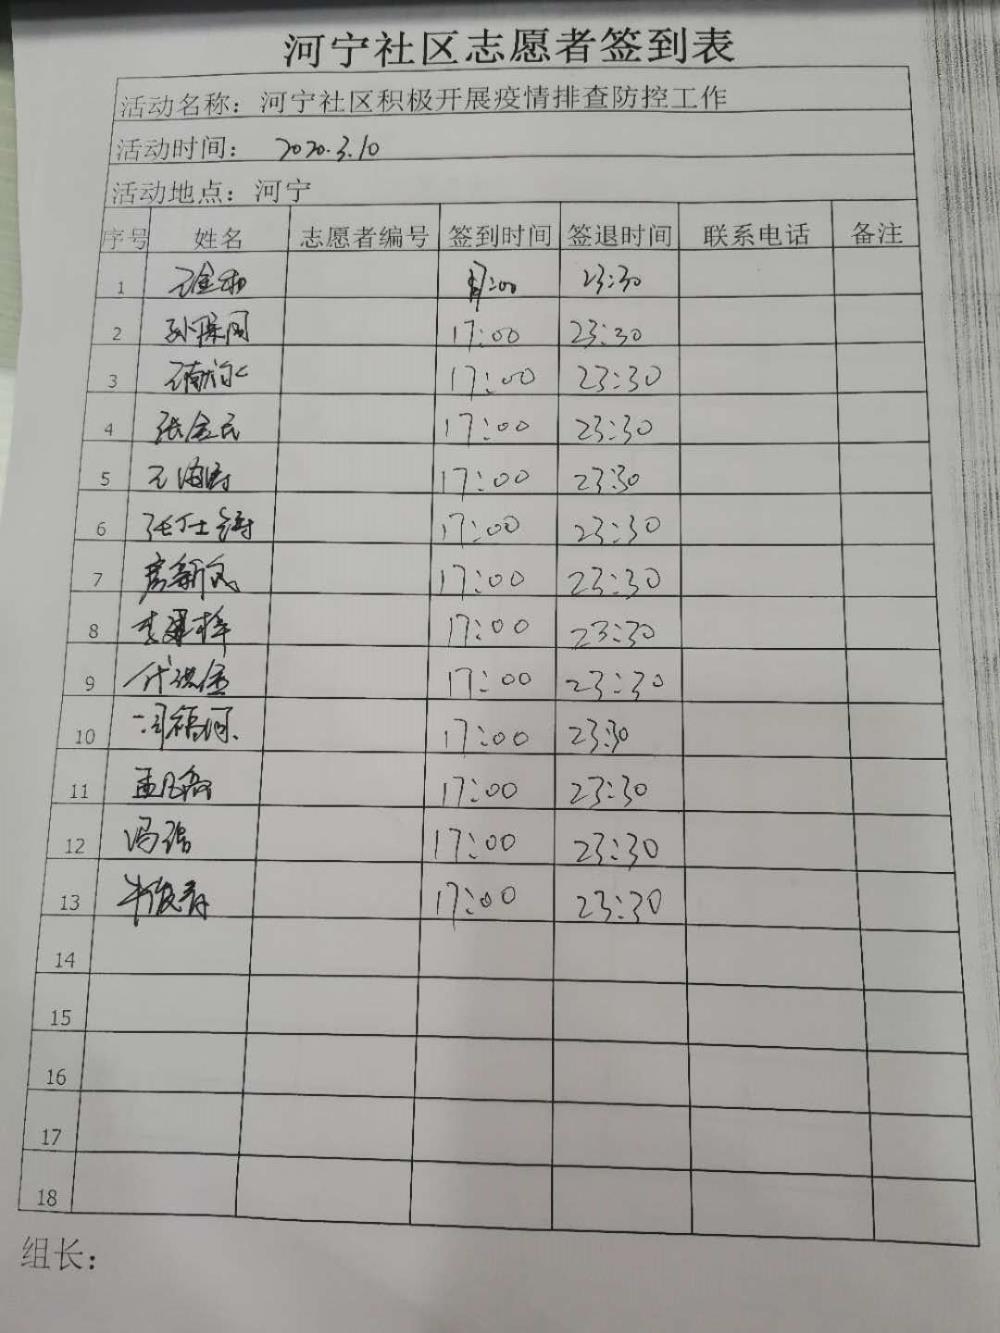 河宁社区志愿者签到表
活动名称：河宁社区积极开展疫情排查防控工作
活动时间： 2020.3.10
活动地点：河宁
序号 姓名 志愿者编号 签到时间 签退时间 联系电话 备注
1 17:00 23:30
2 17:00 23:30
3 17:00 23:30
4 张金民 17:00 23:30
5 17:00 23:30
6 17:00 23:30
7 17:00 23:30
8 17:00 23:30
9 17:00 23:30
10 17:00 23:30
11 17:00 23:30
12 冯强 17:00 23:30
13 17:00 23:30
14
15
16
17
18
组长：